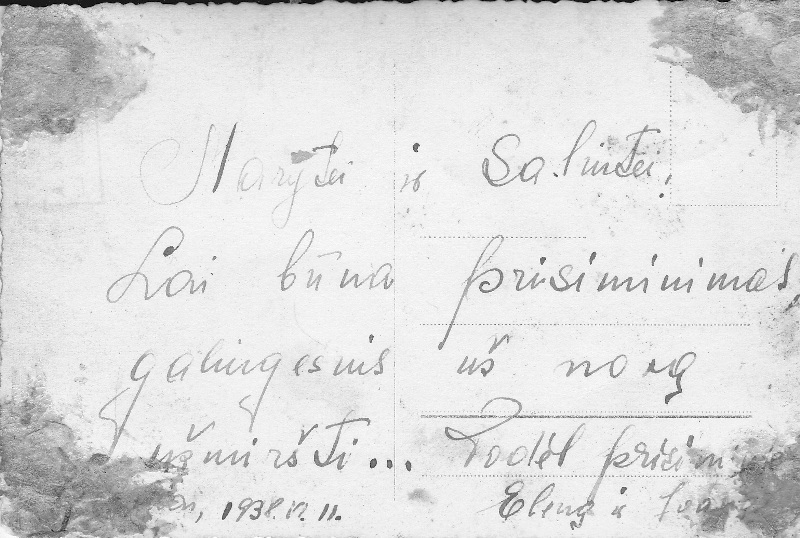 Marytei ir Saliutei,
Lai būna prisiminimas
galingesnis už norą
užmiršti... Todėl prisimi
1938.VI.11. Eleną ir